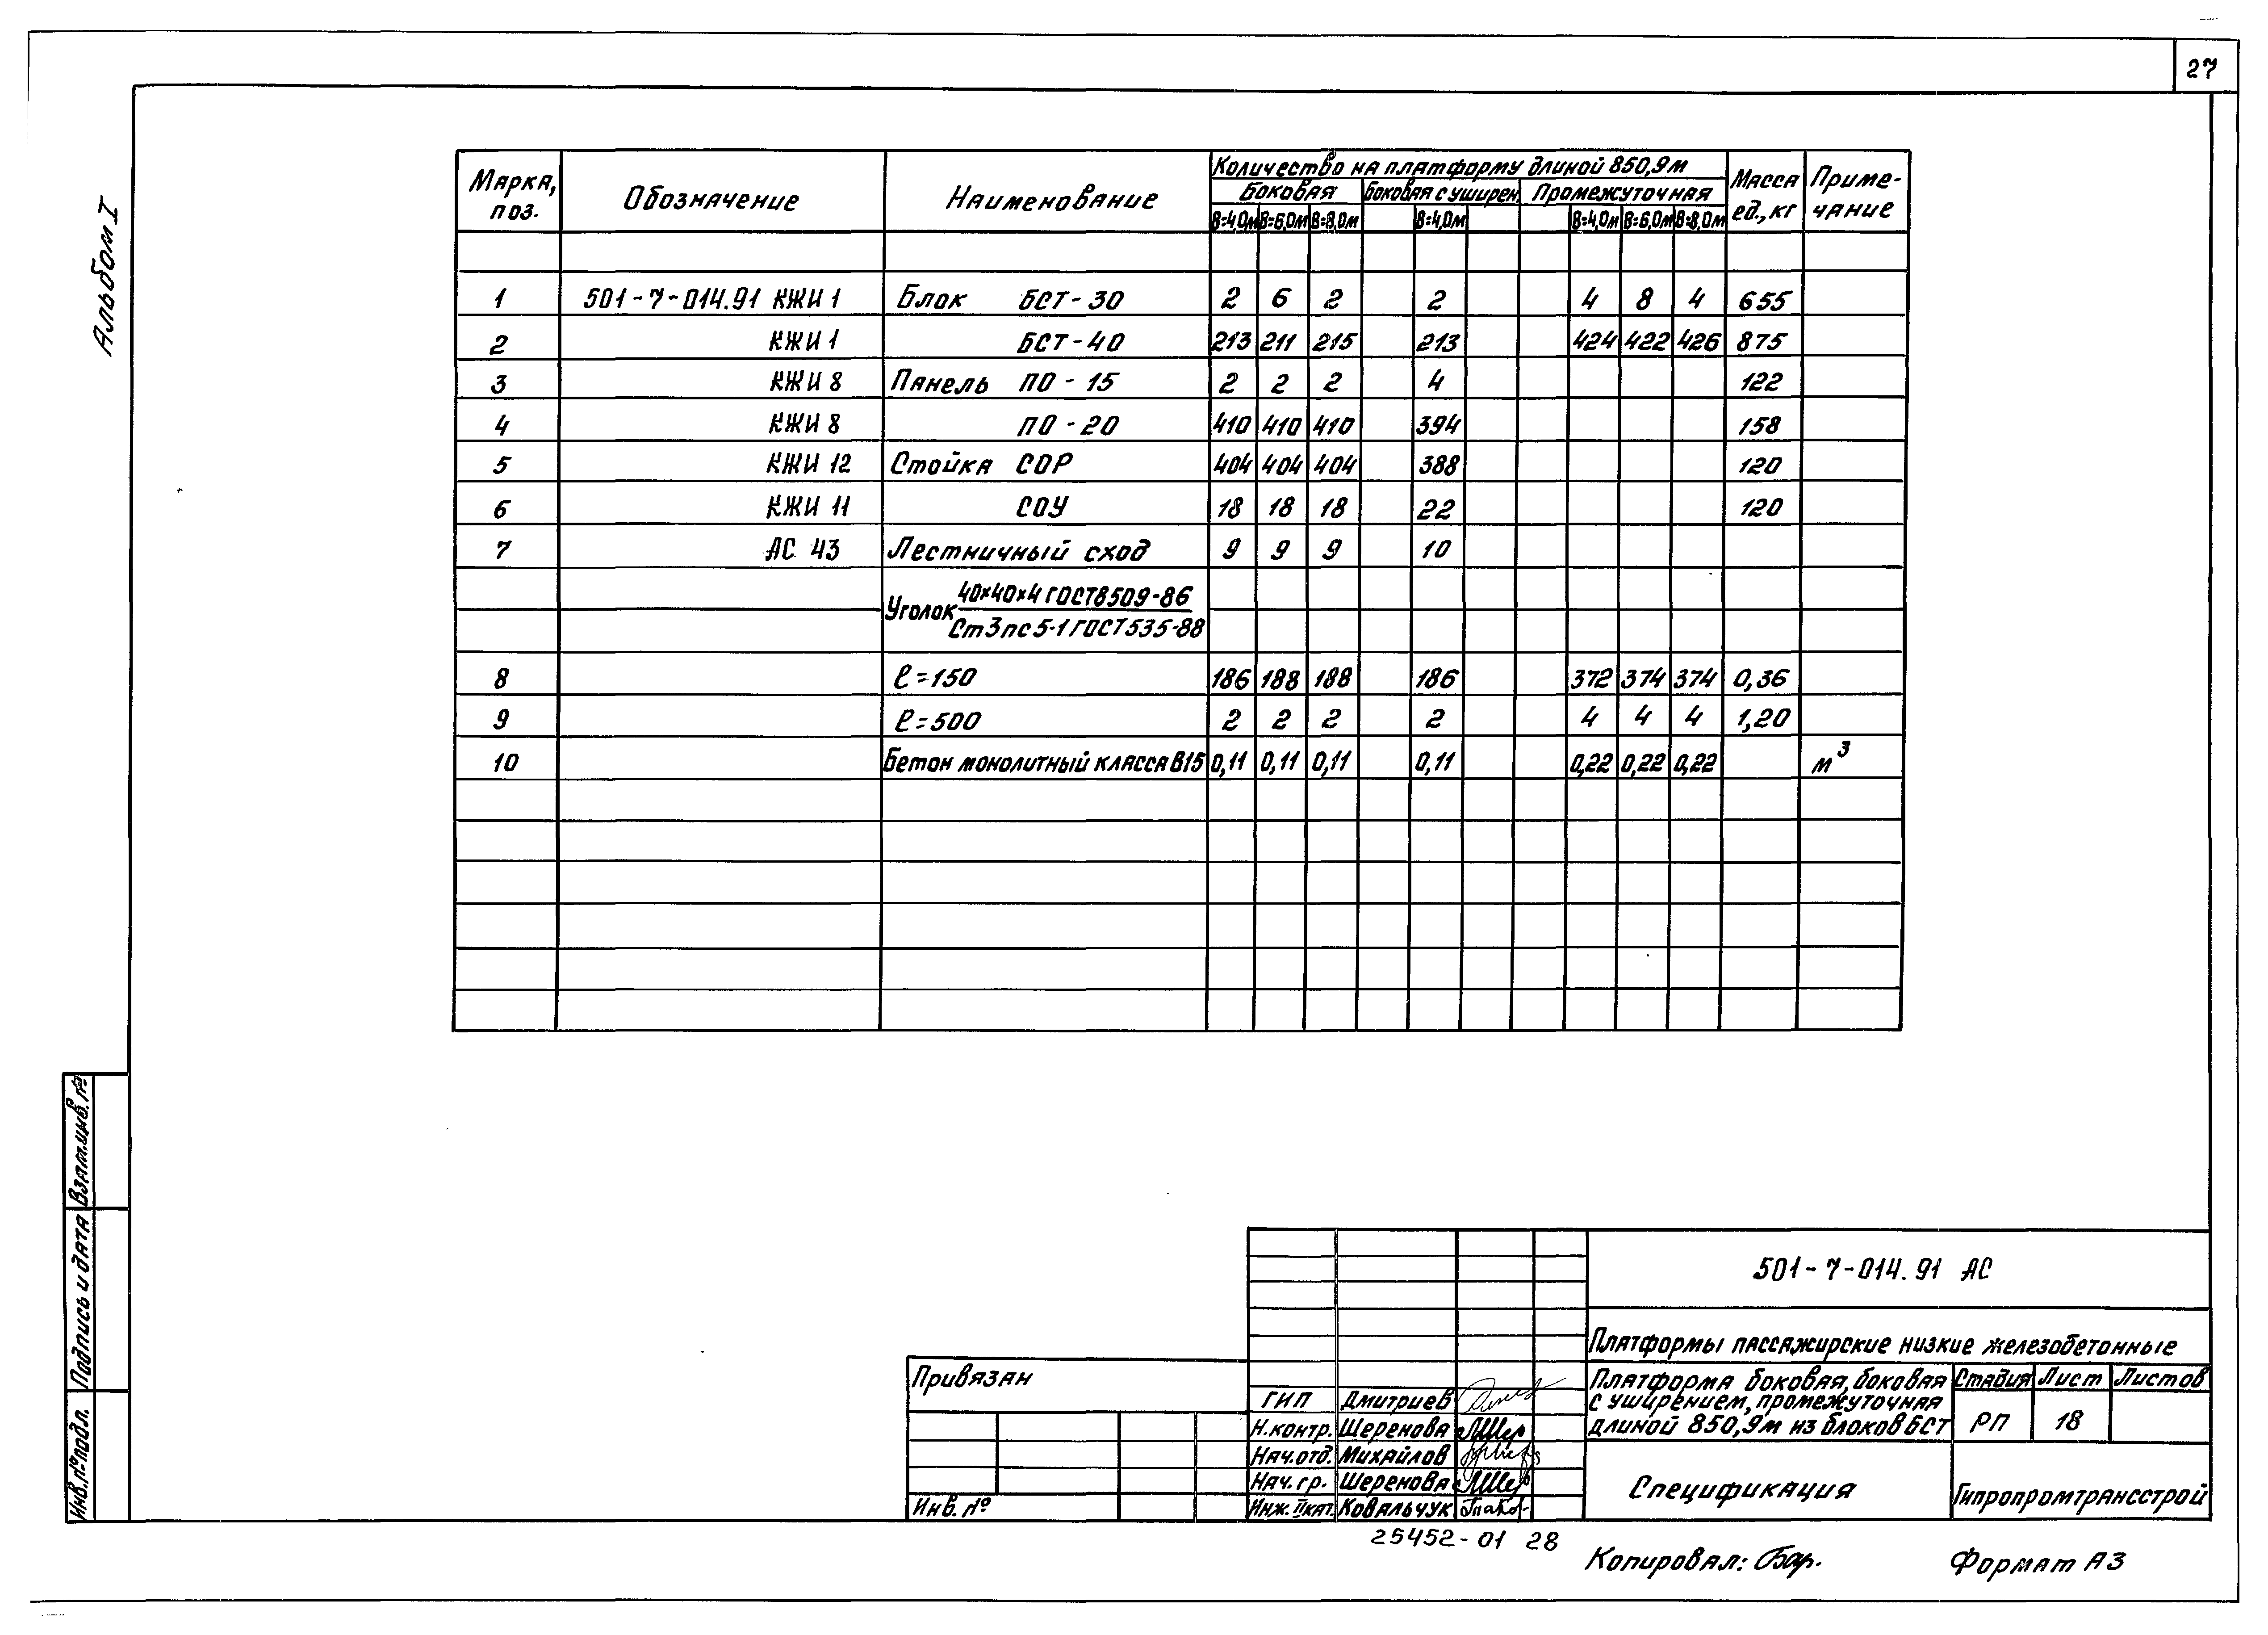 27
Альбом I
Марка, поз. Обозначение Наименование Количество на платформу длиной 850,9м Масса ед., кг Приме-чание
Боковая Боковая с уширен. Промежуточная
В=4,0м В=6,0м В=8,0м В=4,0м В=4,0м В=6,0м В=8,0м
1 501-7-014.91 КЖИ 1 Блок БСТ-30 2 6 2 2 4 8 4 655
2 КЖИ 1 БСТ-40 213 211 215 213 424 422 426 875
3 КЖИ 8 Панель ПО-15 2 2 2 4 122
4 КЖИ 8 ПО-20 410 410 410 394 158
5 КЖИ 12 Стойка СОР 404 404 404 388 120
6 КЖИ 11 СОУ 18 18 18 22 120
7 АС 43 Лестничный сход 9 9 9 10
Уголок 40×40×4 ГОСТ 8509-86
Ст3пс5-1 ГОСТ 535-88
8 ℓ=150 186 188 188 186 372 374 374 0,36
9 ℓ=500 2 2 2 2 4 4 4 1,20
10 Бетон монолитный класса В15 0,11 0,11 0,11 0,11 0,22 0,22 0,22 м³
Взам.инв.№
Подпись и дата
Инв.№подл.
501-7-014.91 АС
Платформы пассажирские низкие железобетонные
Привязан
Инв.№
ГИП Дмитриев
Н.контр. Шеренова
Нач.отд. Михайлов
Нач.гр. Шеренова
Инж. II кат. Ковальчук
Платформа боковая, боковая
с уширением, промежуточная
длиной 850,9м из блоков БСТ
Стадия Лист Листов
РП 18
Спецификация
Гипропромтрансстрой
25452-01 28
Копировал:
Формат А3